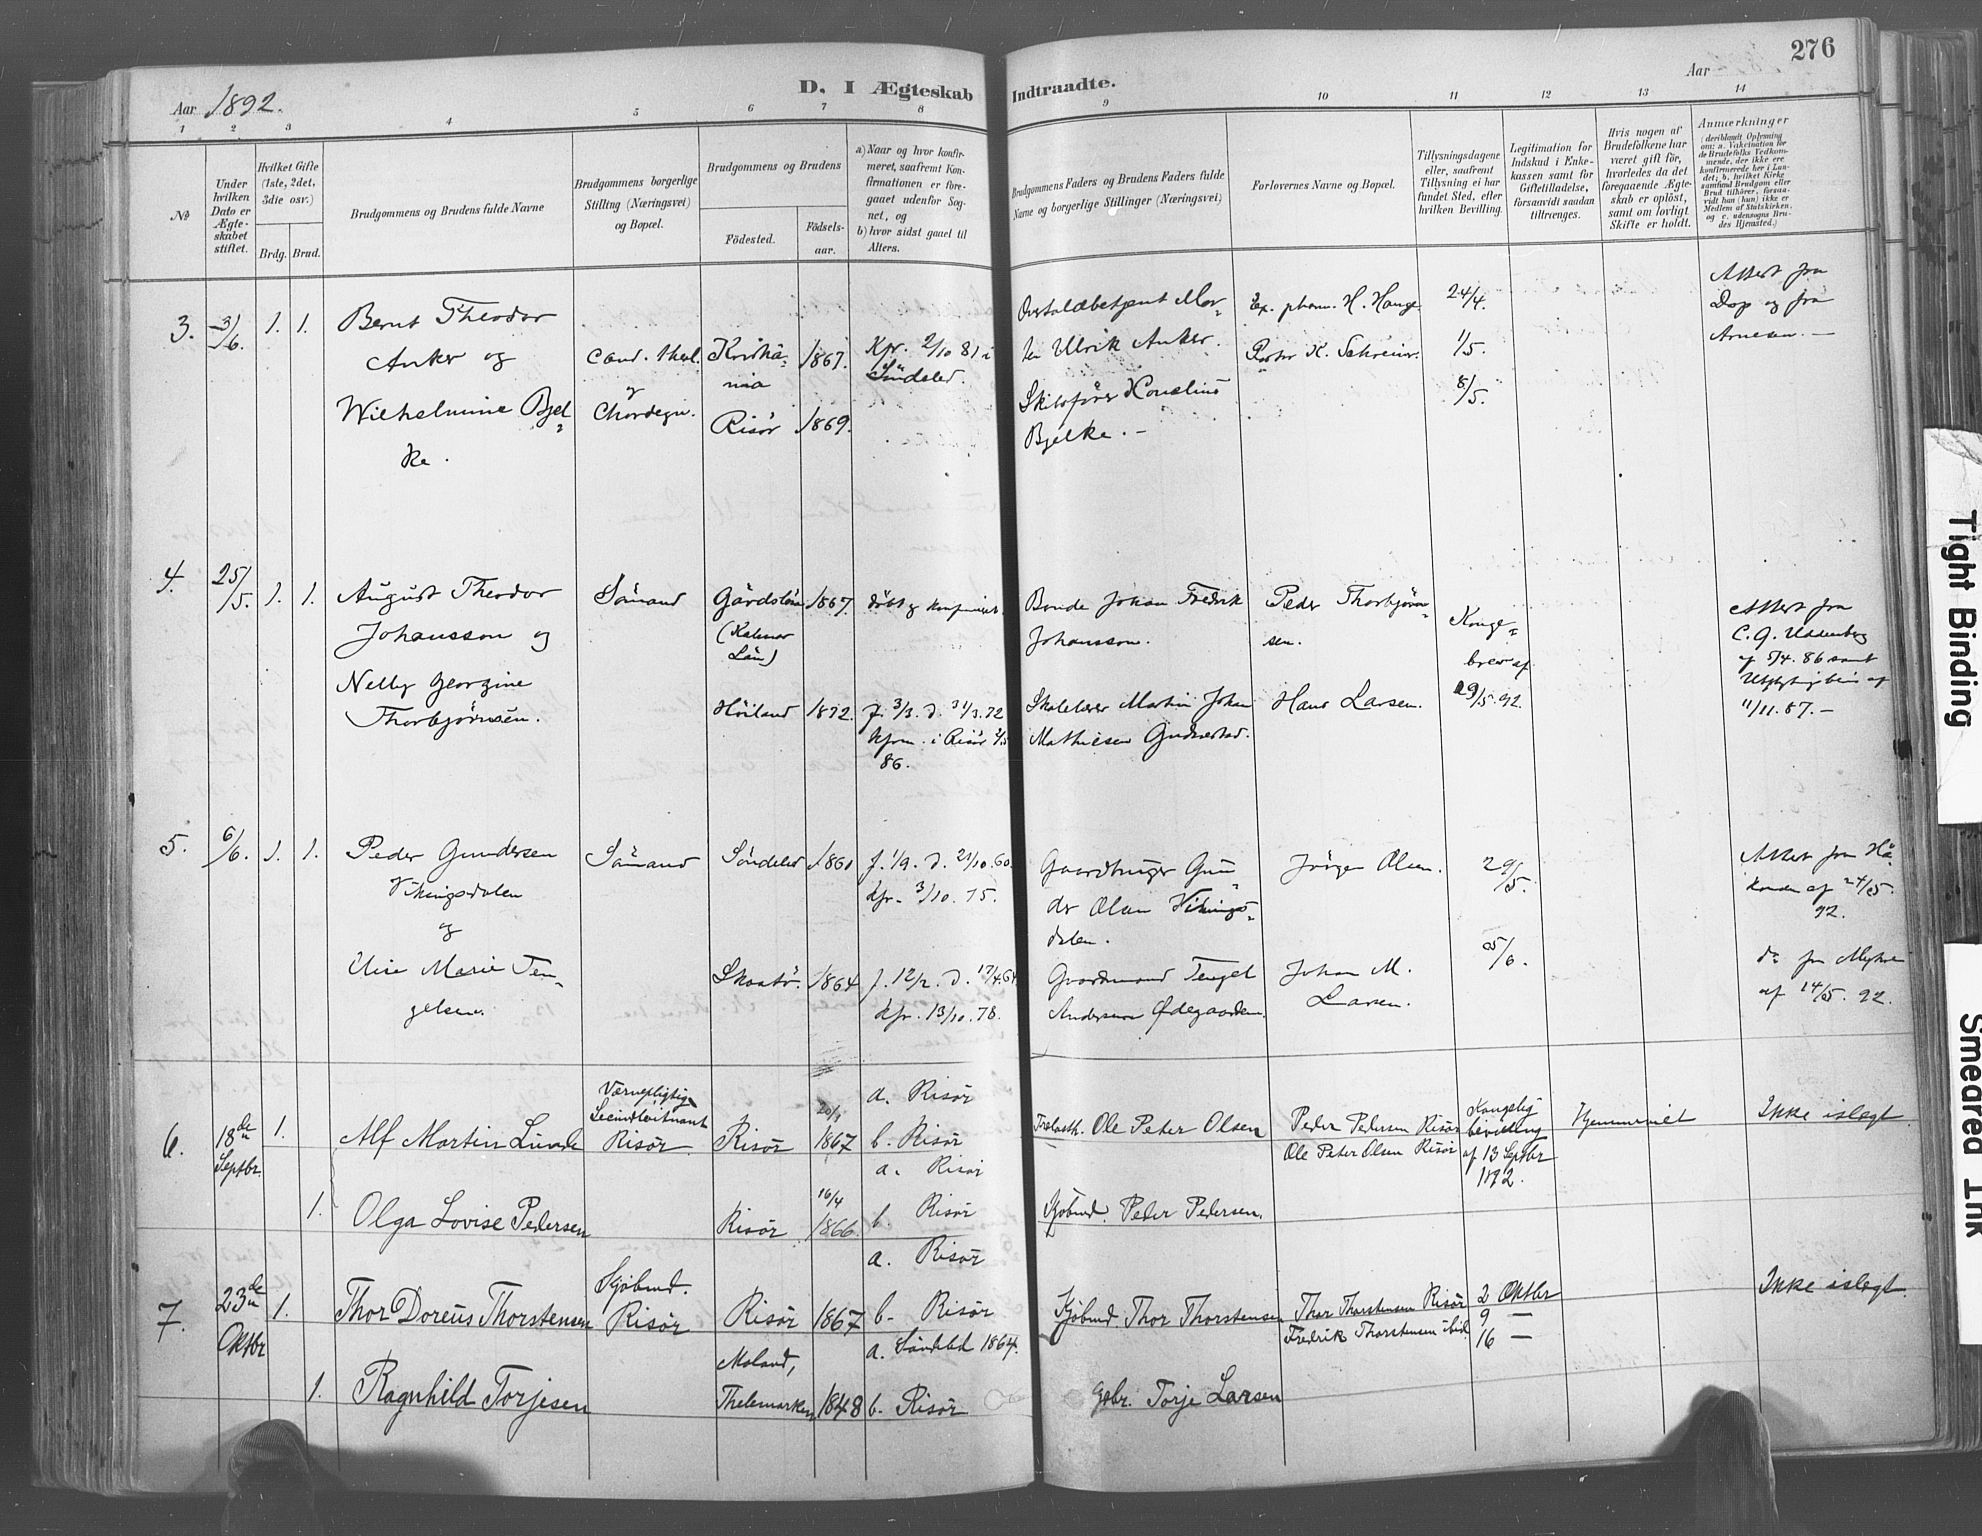 276
Aar 1892.
D. I Ægteskab Indtraadte.
Aar
1 2 3 4 5 6 7 8 9 10 11 12 13 14
No
Under hvilken Dato er Ægteskabet stiftet.
Hvilket Gifte (1ste, 2det, 3die osv.)
Brdg. Brud.
Brudgommens og Brudens fulde Navne
Brudgommens borgerlige Stilling (Næringsvei) og Bopæl.
Brudgommens og Brudens
Födested.
Födsels-aar.
a) Naar og hvor konfirmeret, saafremt Konfirmationen er foregaaet udenfor Sognet, og
b) hvor sidst gaaet til Alters.
Brudgommens Faders og Brudens Faders fulde Navne og borgerlige Stillinger (Næringsvei)
Forlovernes Navne og Bopæl.
Tillysningsdagene eller, saafremt Tillysning ei har fundet Sted, efter hvilken Bevilling.
Legitimation for Indskud i Enkekassen samt for Giftetilladelse, forsaavidt saadan tiltrænges.
Hvis nogen af Brudefolkene har været gift før, hvorledes da det foregaaende Ægteskab er oplöst, samt om lovligt Skifte er holdt.
Anmærkninger
(deriblandt Oplysning om: a. Vakcination for de Brudefolks Vedkommende, der ikke ere konfirmerede her i Landet; b. hvilket Kirkesamfund Brudgom eller Brud tilhörer, forsaavidt han (hun) ikke er Medlem af Statskirken, og c. udensogns Brudes Hjemsted.)
3. 3/6. 1. 1. Bernt Theodor
Anker og
Wilhelmine Bjel=
ke.
Cand. theol.
og
Chordegn.
Kristia=
nia
1867.
Risör 1869.
Kfr. 2/10 81 i
Söndeled.
Overtoldbetjent Mor=
ten Ulrik Anker.
Skibsförer Kornelius
Bjelke. —
Ex. pharm. H. Hauge
Pastor K. Schreiner.
24/4.
1/5.
8/5.
Attest fra
Dop og fra
Arnesen. —
4. 25/5. 1. 1. August Theodor
Johansson og
Nelly Georgine
Thorbjörnsen.
Sömand
Gårdslösa 1867.
(Kalmar
Län)
Höiland 1872.
döbt og konfirmeret
f. 3/3. d. 31/3. 72
kfrm. i Risör
86.
Bonde Johan Fredrik
Johansson.
Skolelærer Martin Johan
Mathiesen
Peder Thorbjörn=
sen.
Hans Larsen.
Konge=
brev af
Attest fra
af 5/4. 86 samt
11/11. 87. —
5. 6/6. 1. 1. Peder Gundersen
Vikingsdalen
og
Marie Ten=
gelsen.
Sömand
Söndeled 1860
Skaatö. 1864
f. 1/9. d. 21/10. 60.
Kfr. 3/10. 75.
f. 12/2. d. 17/4. 64
Kfr. 13/10. 78.
Gaardbruger Gun=
der Olsen Vikings=
dalen.
Gaardmand Tengel
Andersen Ødegaarden.
Jörgen Olsen.
Johan M.
Larsen.
29/5.
5/6.
Attest fra
af 24/5.
92.
do fra
af 14/5. 92.
6. 18de Septbr. 1. Alf Martin Lunde
Værnepligtig
Secundløitnant
Risör.
Risör 20/1 1867
a. Risör
b. Risör
Ole Peter Olsen
Peder Pedersen Risör
Ole Peter Olsen Risör
Kongelig
bevilling
af 13 Septbr
1892.
Hjemmeviet
Ikke islægt.
1. Olga Lovise Pedersen
Risör 16/4 1866.
a. Risör
b. Risör
Kjöbmd. Peter Pedersen.
7. 23de Oktbr 1. Thor Doreus Thorstensen
Kjöbmd.
Risör
Risör 1867
a. Risör
b. Risör
Kjöbmd. Thor Thorstensen
Thor Thorstensen Risör
Fredrik Thorstensen ibid
2 Oktbr
9 —
16 —
Ikke islægt.
1. Ragnhild Torjesen
Moland,
Thelemarken 1848
a. Söndeled 1864.
b. Risör
Gbr. Torje Larsen
Tight Binding
Smeared Ink